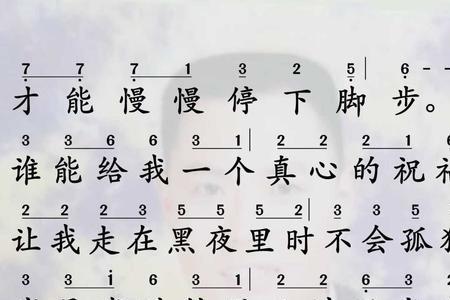 7 7 7 1 3 2 5 | 6 - -
才能慢慢停下脚步。
3 3 6 6 3 1 | 2 2 2 1
谁能给我一个真心的祝
2 2 2 3 5 5 5 2 | 3 3 5
让我走在黑夜里时不会孤
3 3 i 6 3 1 | 2 2 6 3